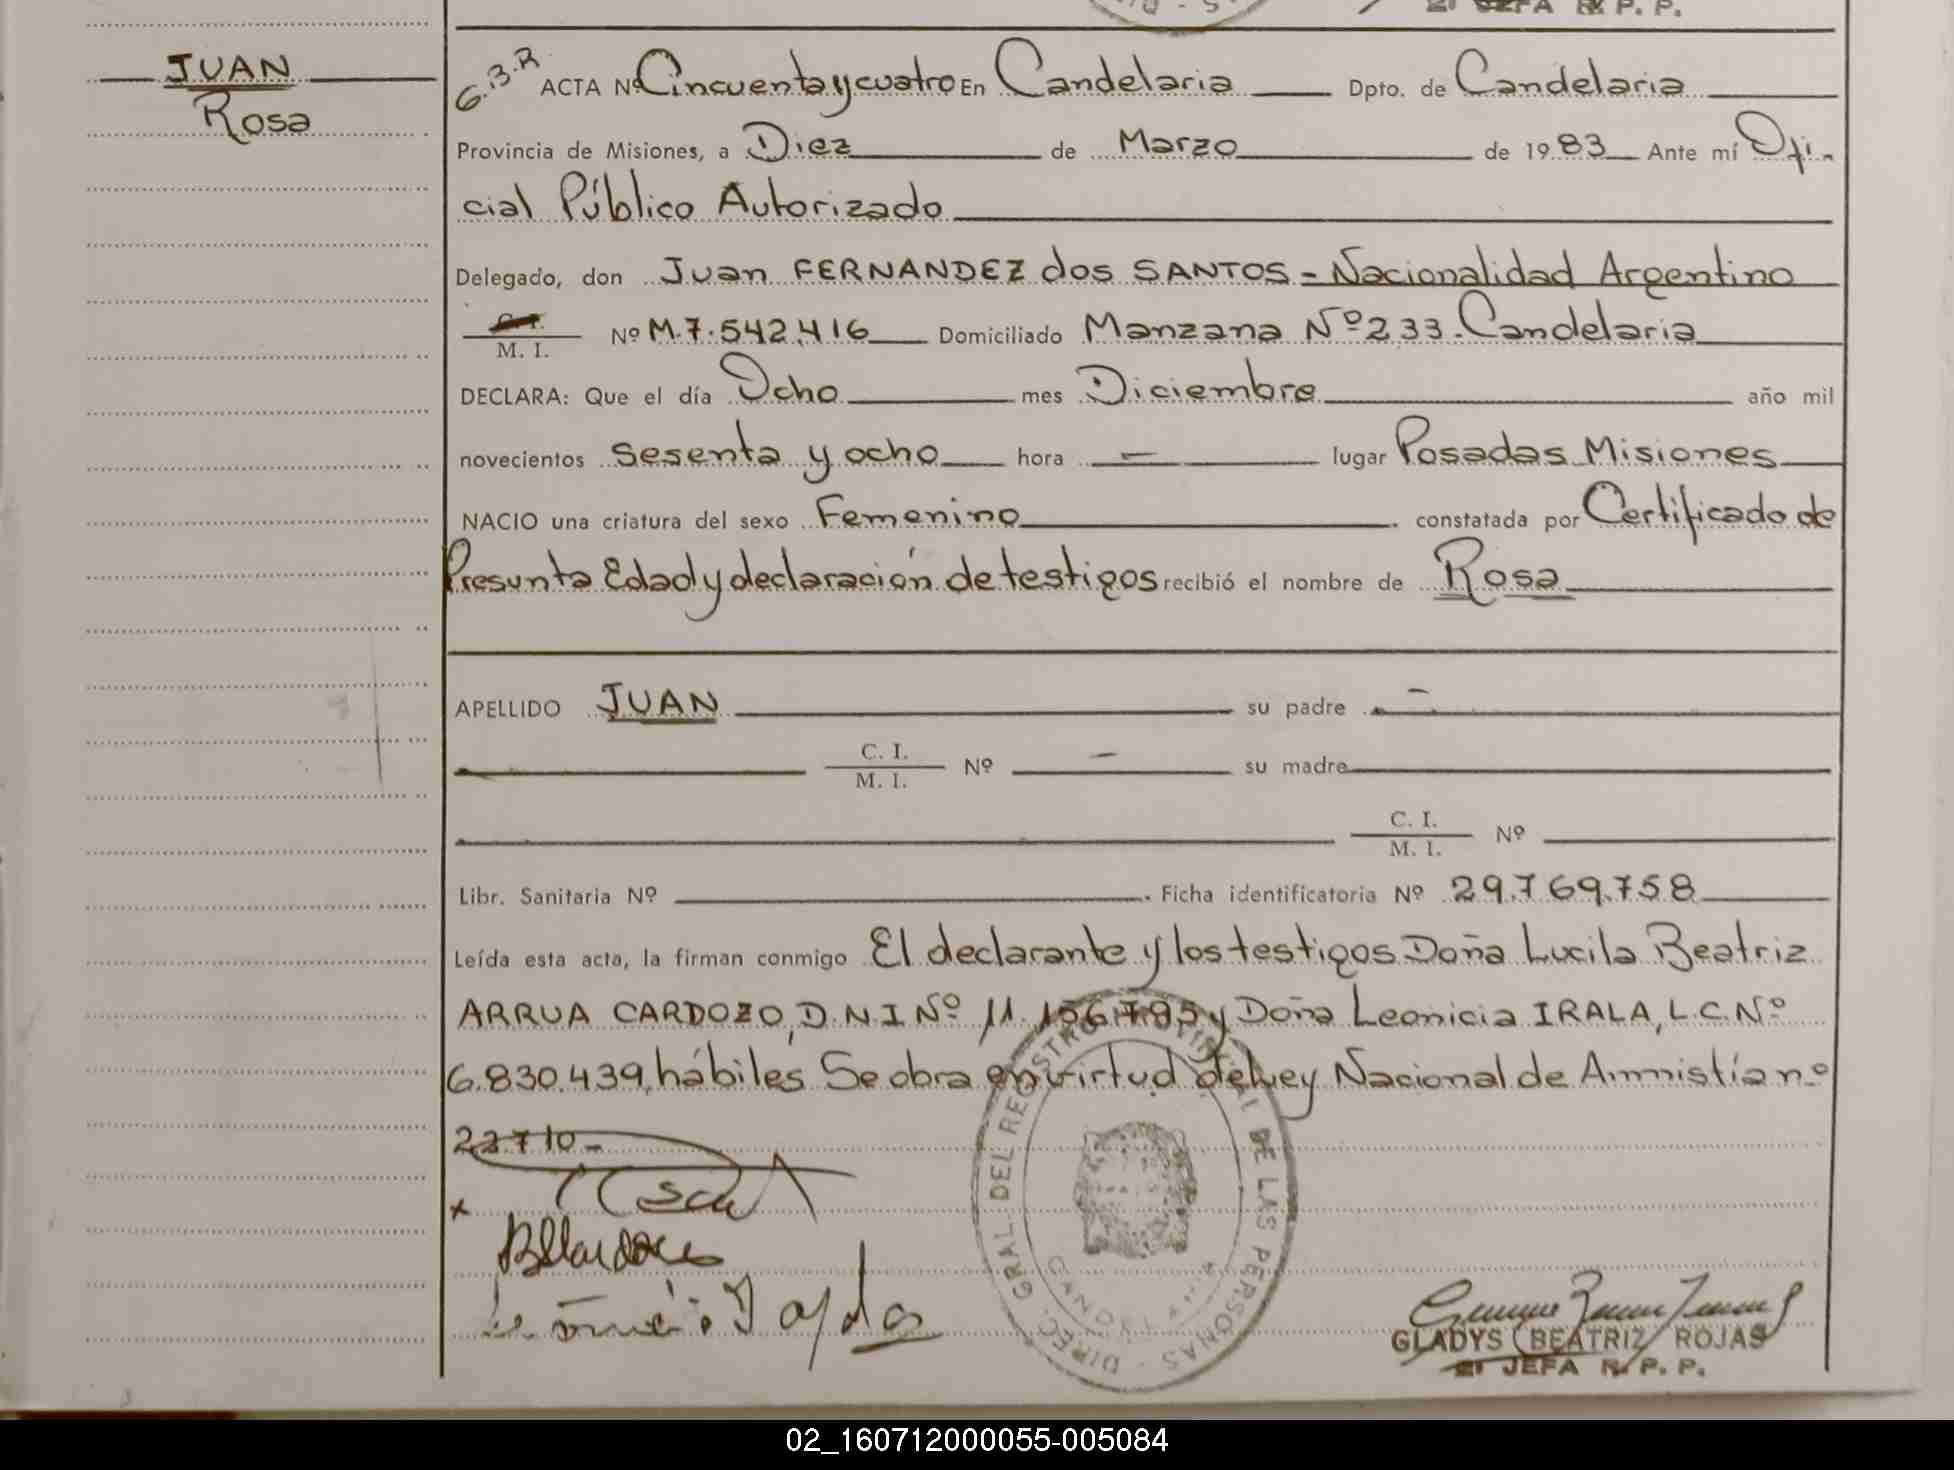 2º JEFA R. P. P.
JUAN
Rosa
6.3.R ACTA Nº Cincuenta y cuatro En Candelaria Dpto. de Candelaria
Provincia de Misiones, a Diez de Marzo de 1983 Ante mí Ofi-
cial Público Autorizado
Delegado, don Juan FERNANDEZ dos SANTOS - Nacionalidad Argentino
C. I.
M. I. Nº M.7.542.416 Domiciliado Manzana Nº 233. Candelaria
DECLARA: Que el día Ocho mes Diciembre año mil
novecientos sesenta y ocho hora — lugar Posadas Misiones
NACIO una criatura del sexo Femenino constatada por Certificado de
Presunta Edad y declaración de testigos recibió el nombre de Rosa
APELLIDO JUAN su padre —
C. I.
M. I. Nº — su madre
C. I.
M. I. Nº
Libr. Sanitaria Nº Ficha identificatoria Nº 29.769.758
Leída esta acta, la firman conmigo El declarante y los testigos Doña Lucila Beatriz
ARRUA CARDOZO, D.N.I Nº 11.156.785 y Doña Leonicia IRALA, L.C.Nº
6.830.439, hábiles Se obra en virtud de Ley Nacional de Amnistía nº
22710-
x
DIREC. GRAL. DEL REGISTRO PROVINCIAL DE LAS PERSONAS
GLADYS BEATRIZ ROJAS
2º JEFA R. P. P.
02_160712000055-005084